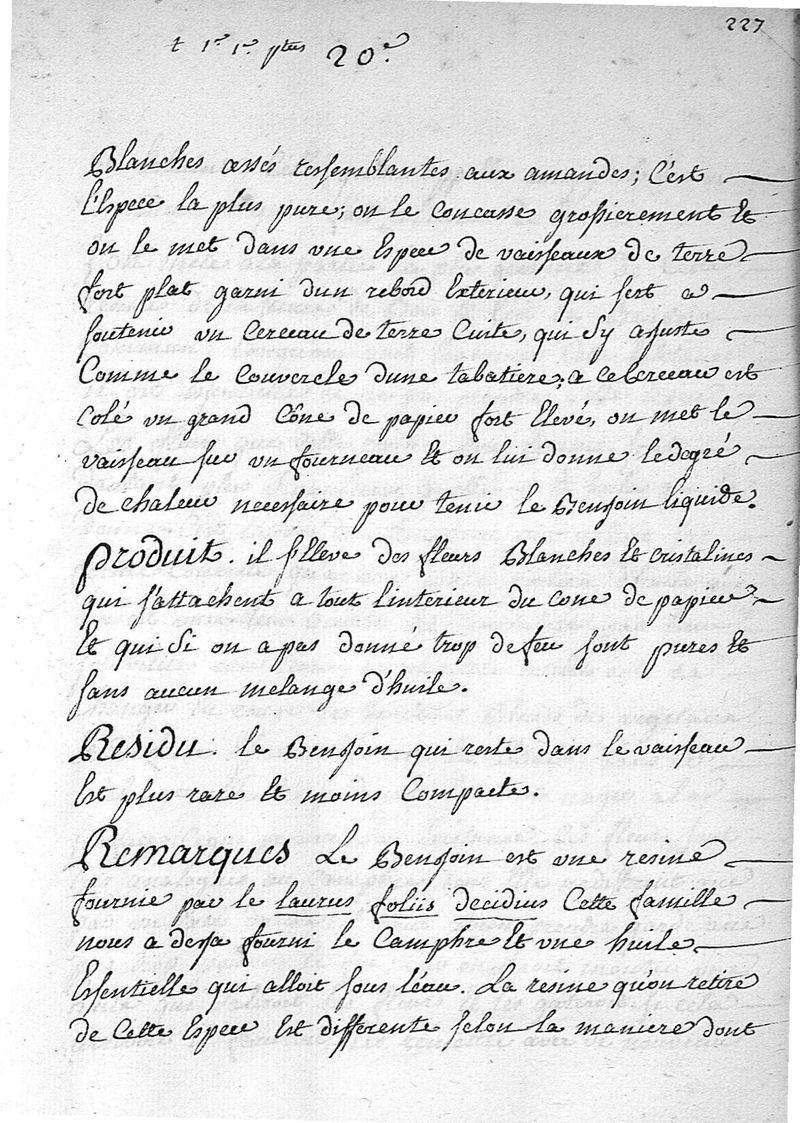 227
t 1er 1e ptes 20e.
Blanches assés ressemblantes aux amandes; C'est
l'Espece la plus pure; on le concasse grossierement Et
on le met dans vne Espece de vaisseaux de terre
fort plat garni dun rebord Exterieur, qui sert a
soutenir vn Cerceau de terre Cuite, qui Sy ajuste
Comme le couvercle dune tabatiere; a ce Cerceau est
colé vn grand Cône de papier fort Elevé, on met le
vaisseau sur vn fourneau Et on lui donne le degré
de chaleur necessaire pour tenir le Benjoin liquide.
Produit. il s'Eleve des fleurs Blanches Et cristalines
qui s'attachent a tout l'interieur du cone de papier
Et qui Si on a pas donné trop de feu sont pures Et
sans aucun melange d'huile.
Residu. le Benjoin qui reste dans le vaisseau
Est plus rare Et moins Compacte.
Remarques Le Benjoin est vne resine
fournie par le laurus foliis decidius Cette famille
nous a deja fourni le Camphre Et vne huile
Essentielle qui alloit sous l'éau. La resine qu'on retire
de Cette Espece Est differente selon la maniere dont